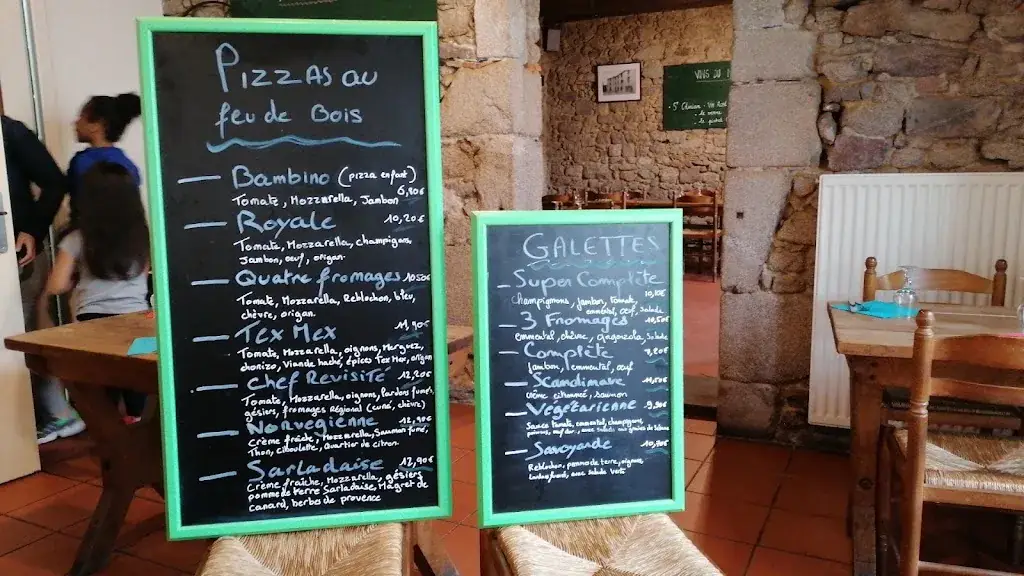 Pizzas au
feu de Bois
Bambino (pizza enfant)
6,90€
Tomate, Mozzarella, Jambon
Royale 10,20€
Tomate, Mozzarella, champignons,
Jambon, oeuf, origan.
Quatre fromages 10,50€
Tomate, Mozzarella, Reblochon, bleu,
chèvre, origan.
Tex Mex 11,90€
Tomate, Mozzarella, oignons, Merguez,
chorizo, Viande haché, épices Tex Mex, origan
Chef Revisité 12,20€
Tomate, Mozzarella, oignons, Lardons fumés,
gésiers, fromages Régional (curé, chèvre)
Norvegienne 12,90€
Crème fraîche, Mozzarella, Saumon fumé,
Thon, Ciboulette, Quartier de citron.
Sarladaise 12,90€
Crème fraîche, Mozzarella, gésiers
pomme de terre Sarladaise, Magret de
canard, herbes de provence
VINS DU
GALETTES
Super Complète
10,10€
champignons, jambon, Tomate,
emmental, oeuf, Salade
3 Fromages 10,50€
emmental, chèvre, gorgonzola, Salade
Complète 9,20€
Jambon, emmental, oeuf
Scandinave
crème citronnée, saumon
Végétarienne 9,90€
Sauce tomate, emmental, champignons,
Savoyarde 10,90€
Reblochon, pomme de terre, oignons,
avec salade verte